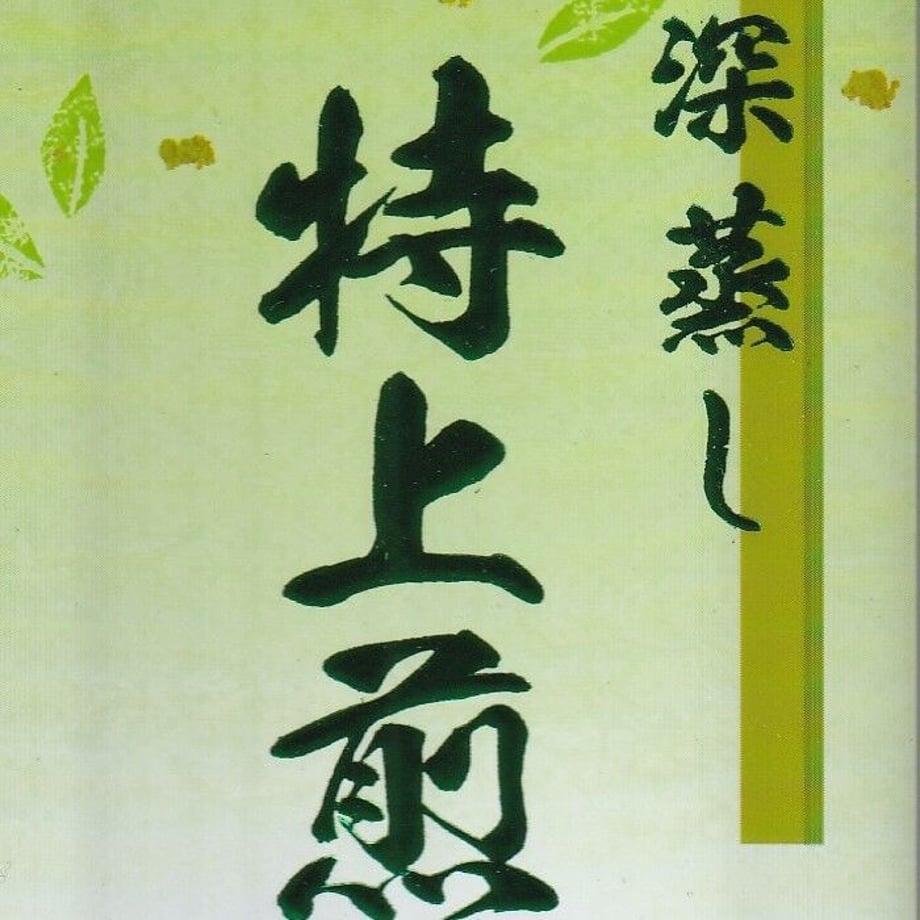 深蒸し
特上煎